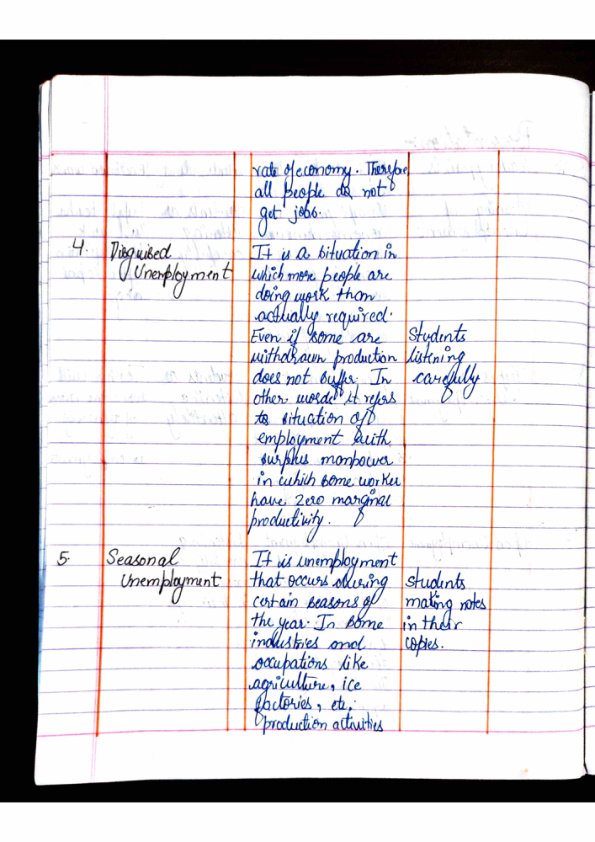 rate of economy. Therefore,
all people do not
get jobs.
4. Disguised
Unemployment
It is a situation in
which more people are
doing work than
actually required.
Even if some are
withdrawn production
does not suffer. In
other words it refers
to situation of
employment with
surplus manpower
in which some worker
have zero marginal
productivity.
Students
listening
carefully
5. Seasonal
Unemployment
It is unemployment
that occurs during
certain seasons of
the year. In some
industries and
occupations like
agriculture, ice
factories, etc.
production activities
Students
making notes
in their
copies.